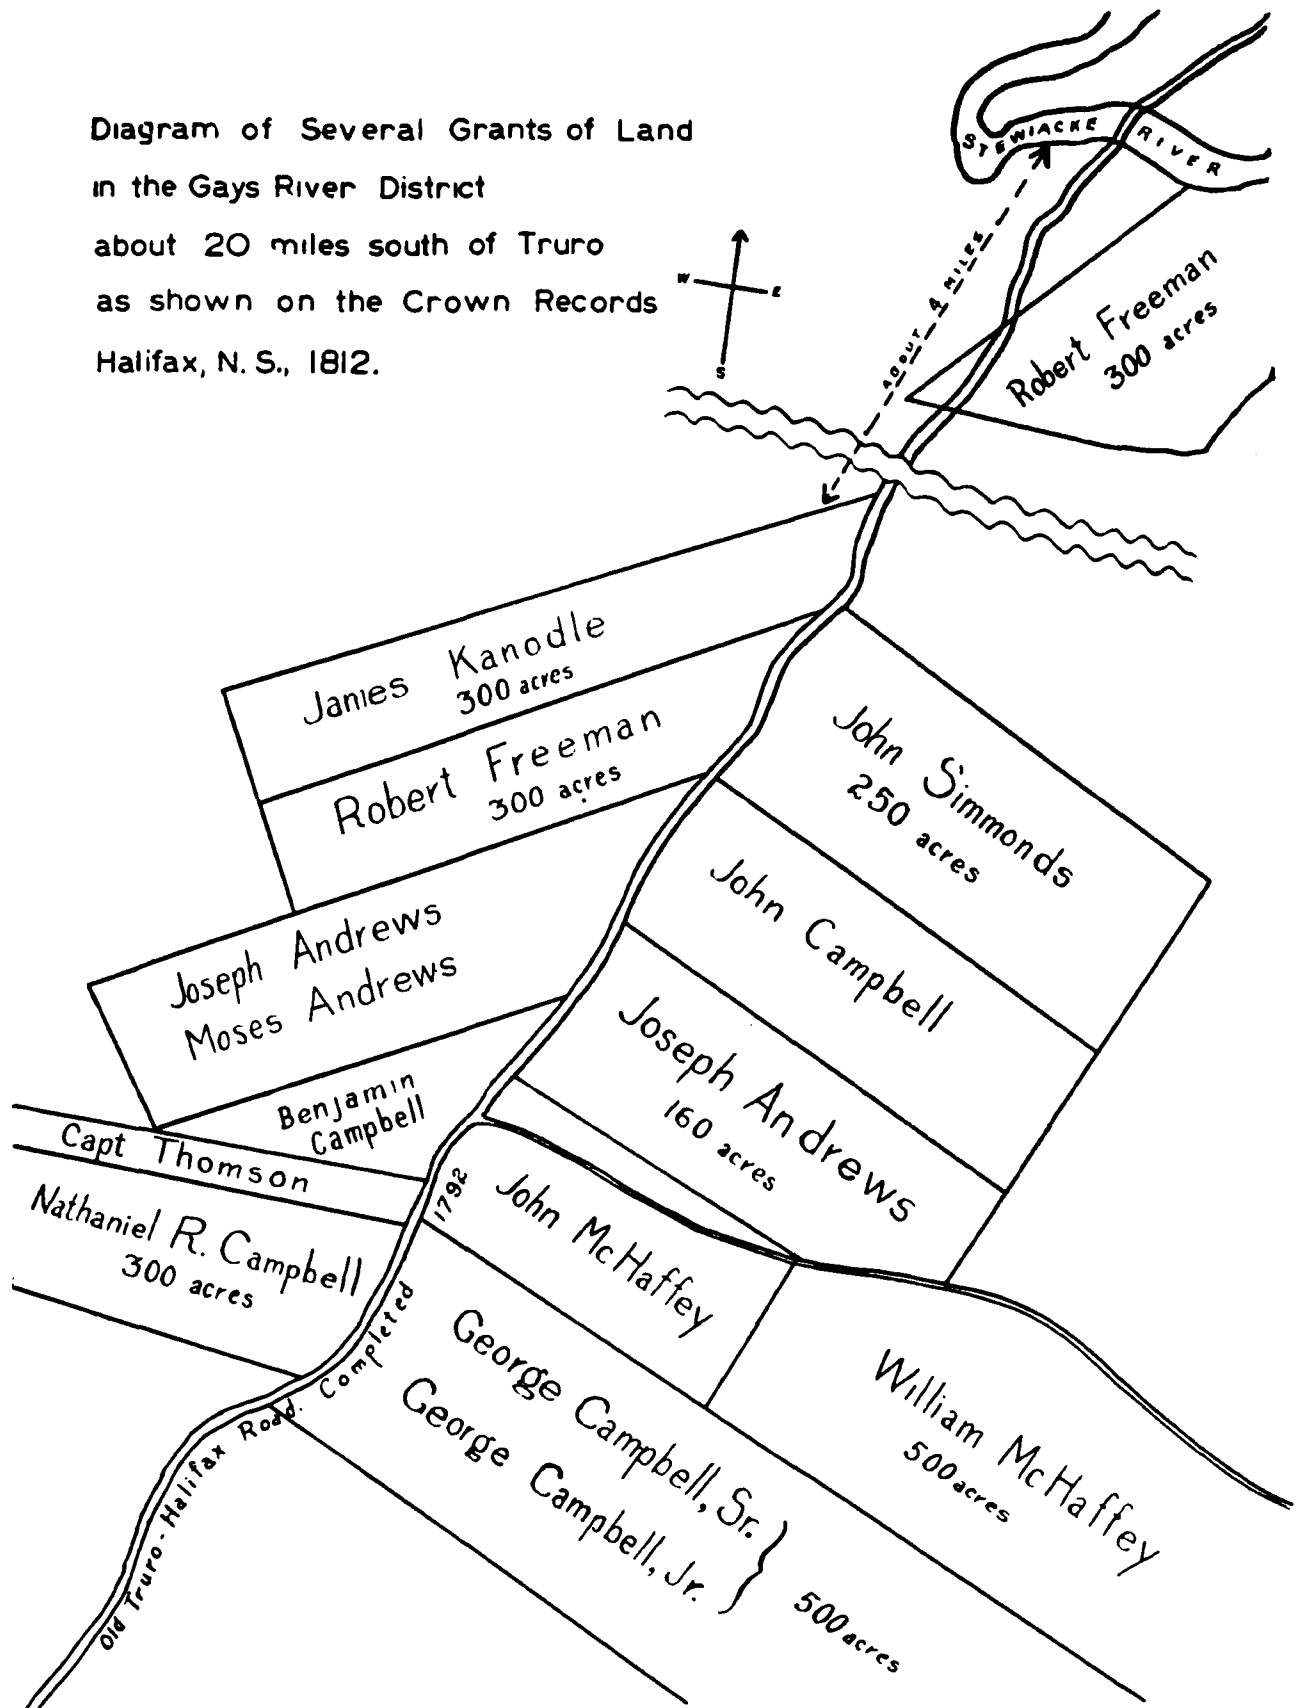 Diagram of Several Grants of Land
in the Gays River District
about 20 miles south of Truro
as shown on the Crown Records
Halifax, N. S., 1812.
STEWIACKE RIVER
W
E
S
ABOUT 4 MILES
Robert Freeman
300 acres
James Kanodle
300 acres
Robert Freeman
300 acres
John Simmonds
250 acres
John Campbell
Joseph Andrews
Moses Andrews
Joseph Andrews
160 acres
Benjamin
Campbell
Capt Thomson
Nathaniel R. Campbell
300 acres
John McHaffey
William McHaffey
500 acres
George Campbell, Sr.
George Campbell, Jr.
500 acres
Old Truro-Halifax Road. Completed 1792